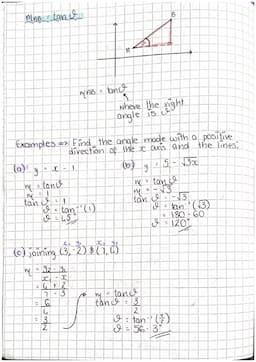 mAB = tan θ
B
A
mAB = tan θ
where the right
angle is θ
Examples => Find the angle made with a positive
direction of the x axis and the lines:
(a) y = x - 1
m = tan θ
m = 1
tan θ = 1
θ = tan⁻¹(1)
θ = 45°
(b) y = 5 - √3x
m = tan θ
m = -√3
tan θ = -√3
θ = tan⁻¹(√3)
= 180 - 60
θ = 120°
(c) joining (3, -2) & (7, 4)
m = y₂ - y₁
x₂ - x₁
= 4 + 2
7 - 3
= 6
4
= 3
2
m = tan θ
tan θ = 3
2
θ = tan⁻¹(3/2)
θ = 56.3°